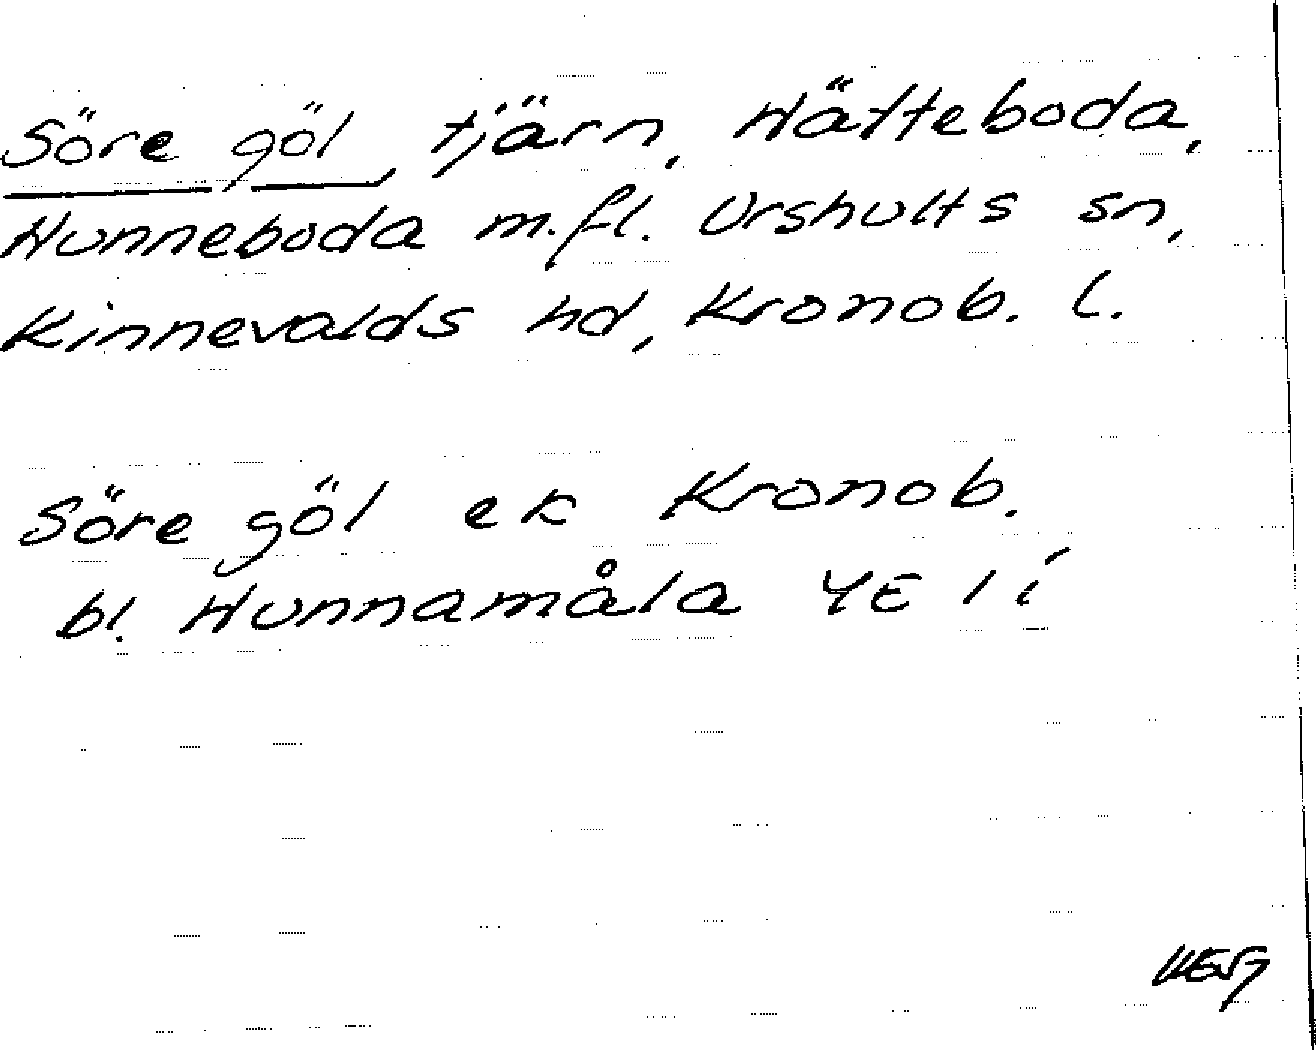 Söre göl, tjärn, Hätteboda,
Hunneboda m.fl. Urshults sn,
Kinnevalds hd, Kronob. l.
Söre göl ek Kronob.
bl. Hunnamåla 4E 1 i